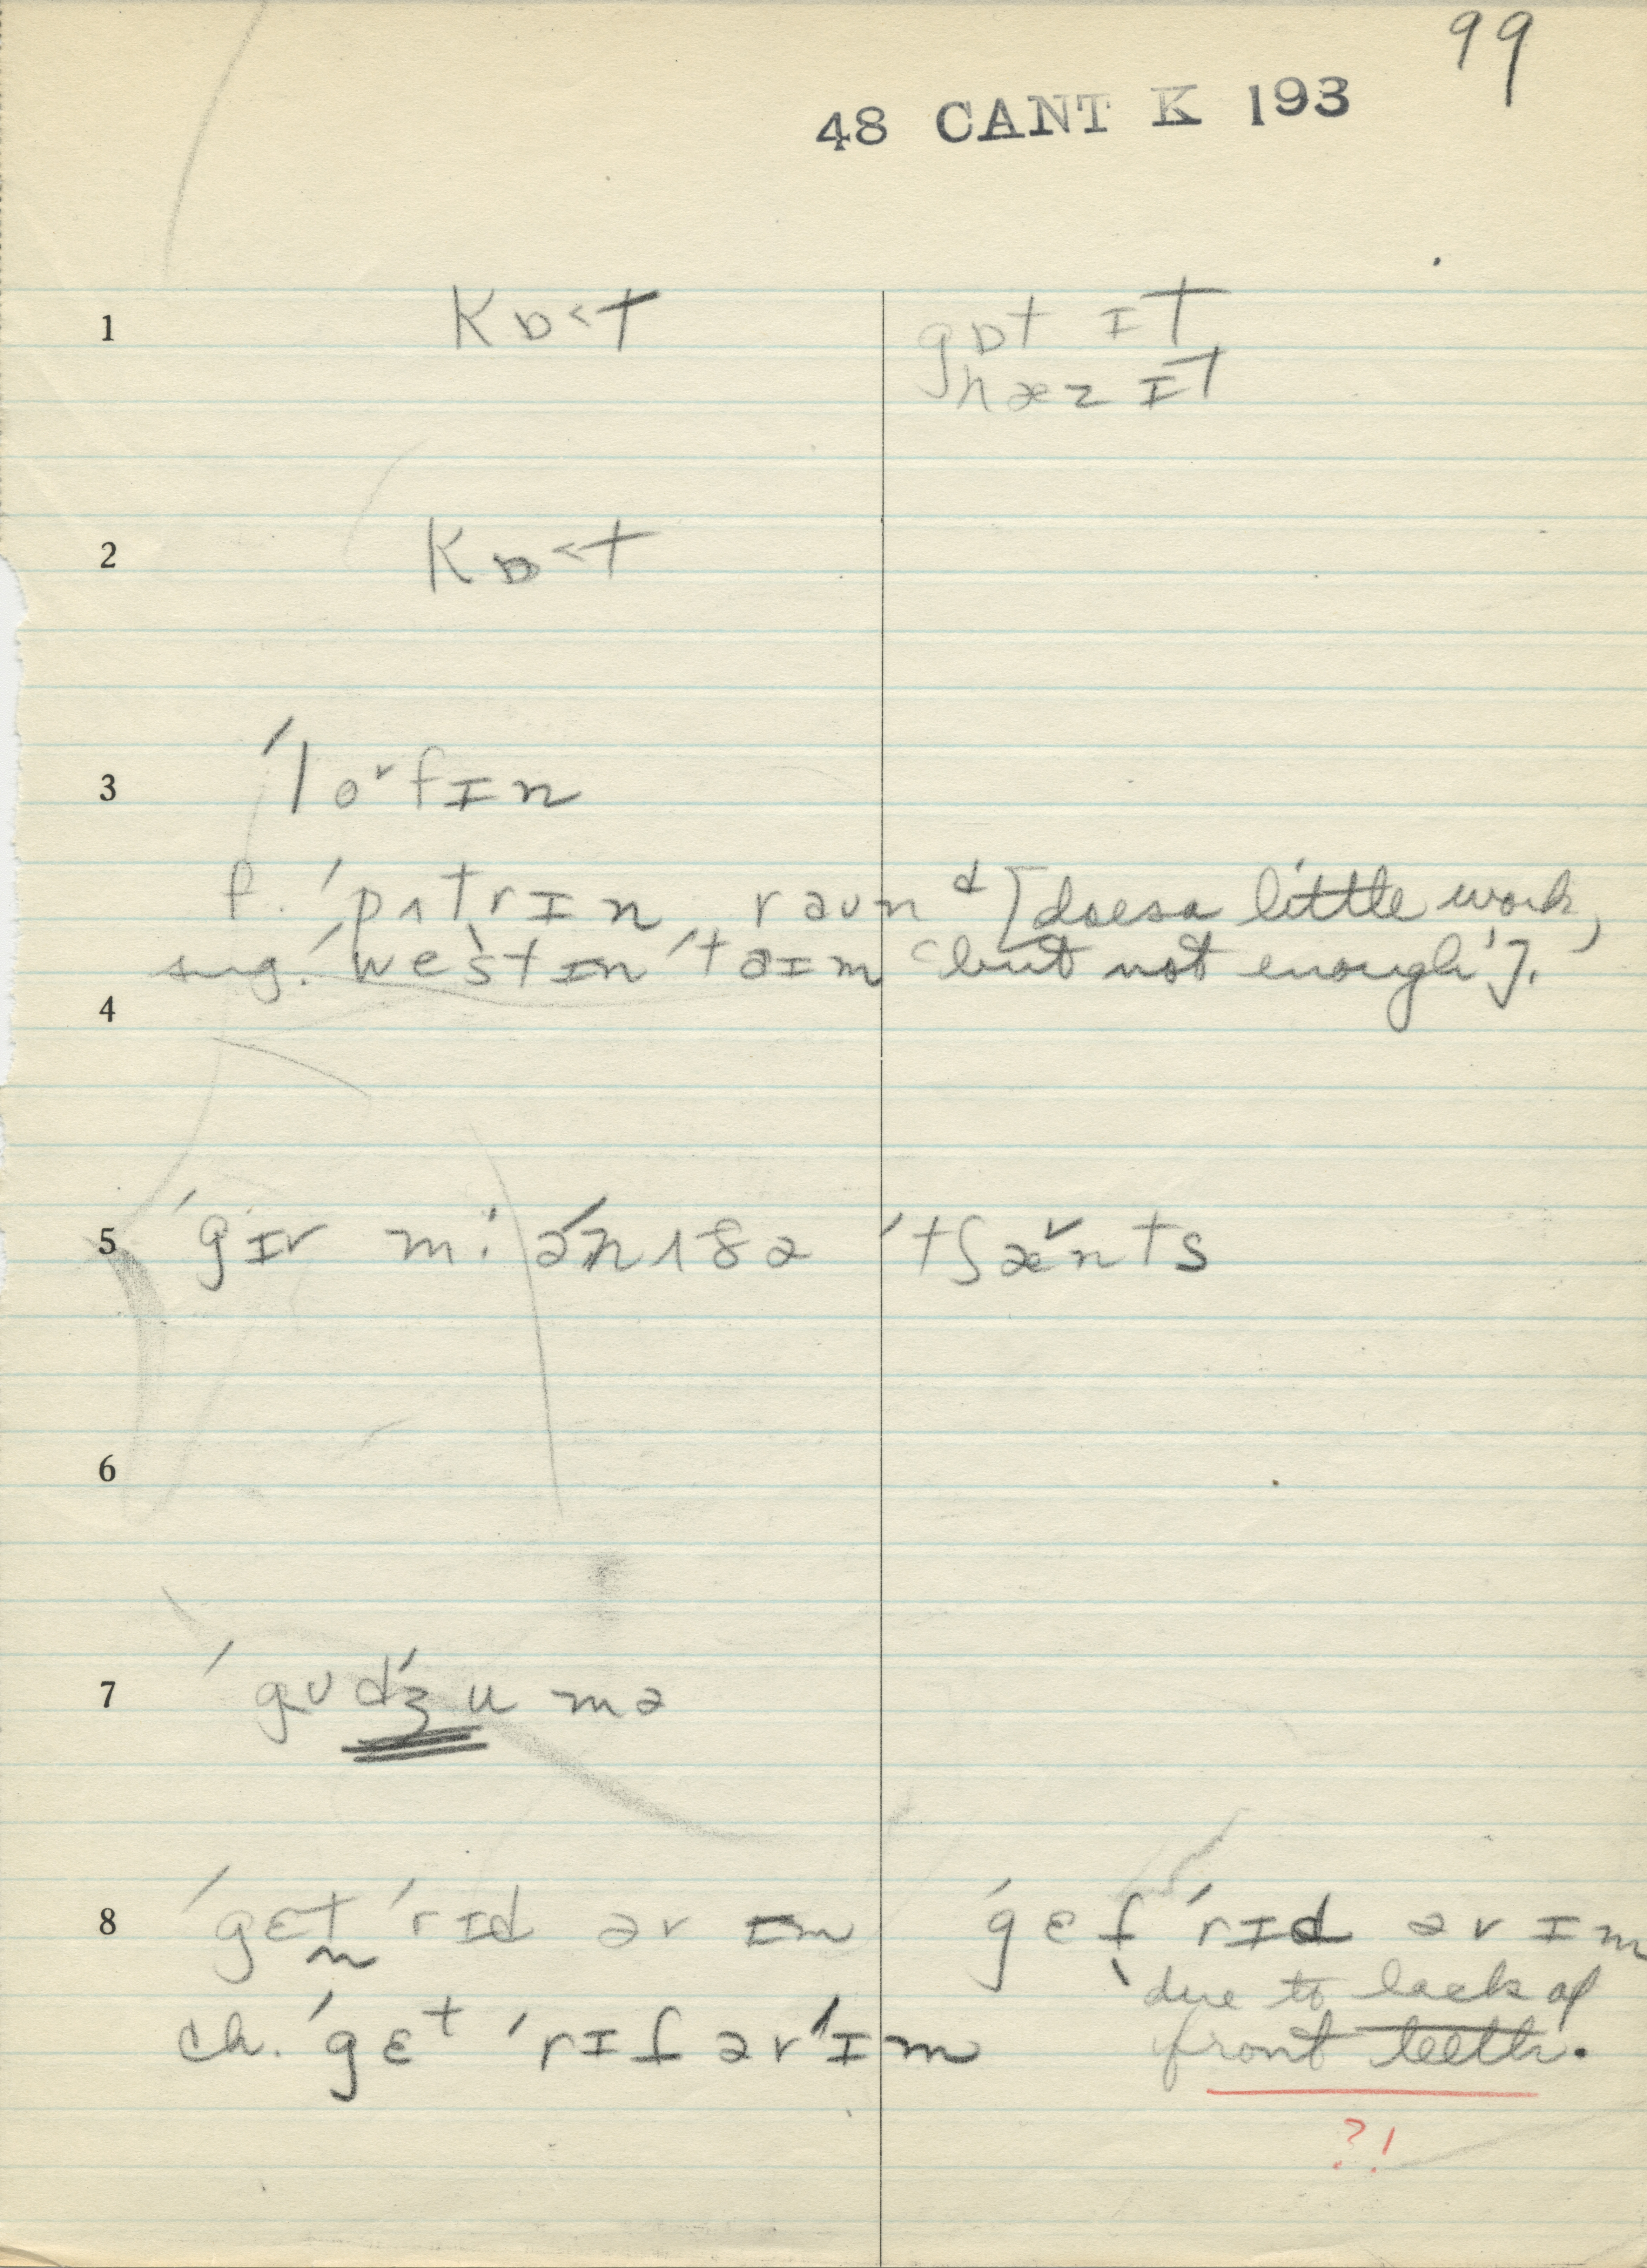 99
48 CANT K 193
1 kɒ˂t gɒt ɪt
hæz ɪt
2 kɒ˂t
3 ˈlo˅fɪn
f. ˈpʌtrɪn raʊnd [does a little work,
sug. ˈwestɪn ˈtaɪm but not enough'].
4
5 ˈgɪv mi əˈnʌðə ˈtʃæ˅nts
6
7 ˈgʊdˈʒu mə
8 ˈgɛt ˈrɪd əv ɪm ˈgɛf ˈrɪd əv ɪm
due to lack of
ch. ˈgɛt ˈrɪf əv ˈɪm front teeth.
?!